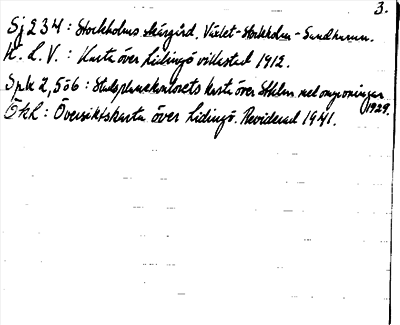 3.
Sj 234 : Stockholms skärgård. Växlet - Stockholm - Sandhamn.
K. L. V. : Karta över Lidingö villastad 1912.
Spk 2,506 : Stadsplanekontorets karta över Sthlm med omgivningar
1929.
ÖkL : Översiktskarta över Lidingö. Reviderad 1941.